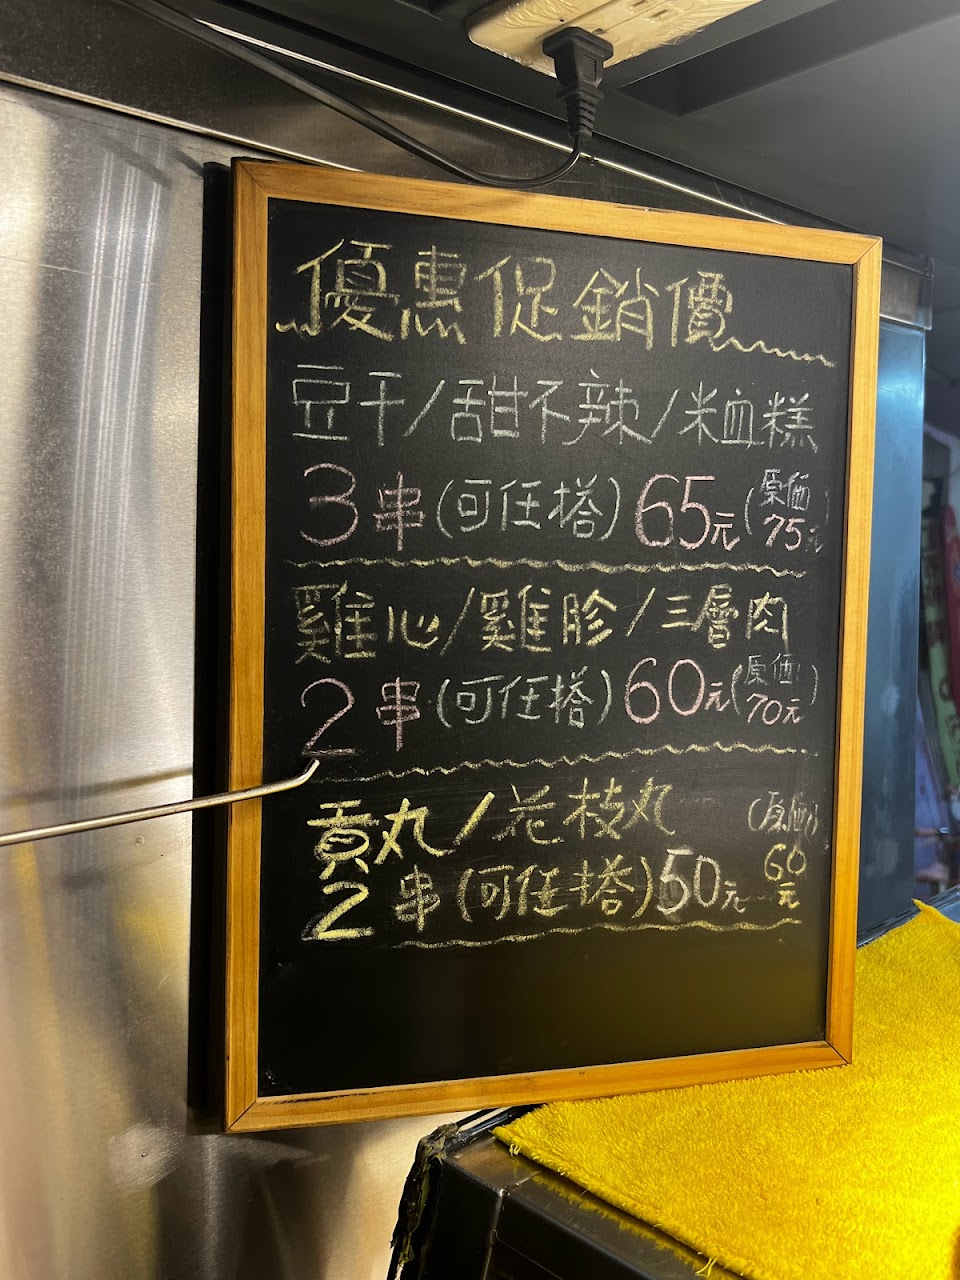 優惠促銷價
豆干/甜不辣/米血糕
3串(可任搭)65元(原価75元)
雞心/雞胗/三層肉
2串(可任搭)60元(原価70元)
貢丸/花枝丸 (原価)
2串(可任搭)50元 60元